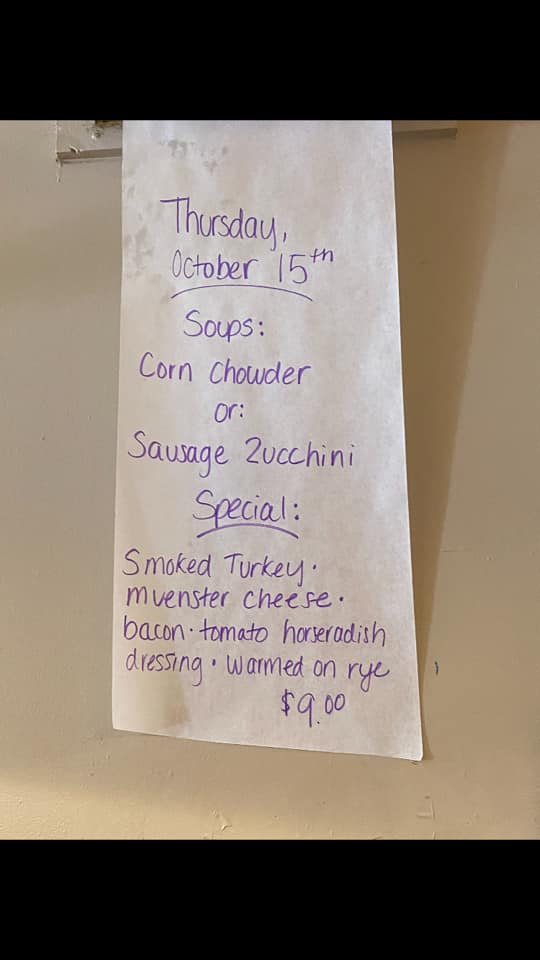 Thursday,
October 15th
Soups:
Corn Chowder
or:
Sausage Zucchini
Special:
Smoked Turkey ·
muenster cheese ·
bacon · tomato horseradish
dressing · warmed on rye
$9.00